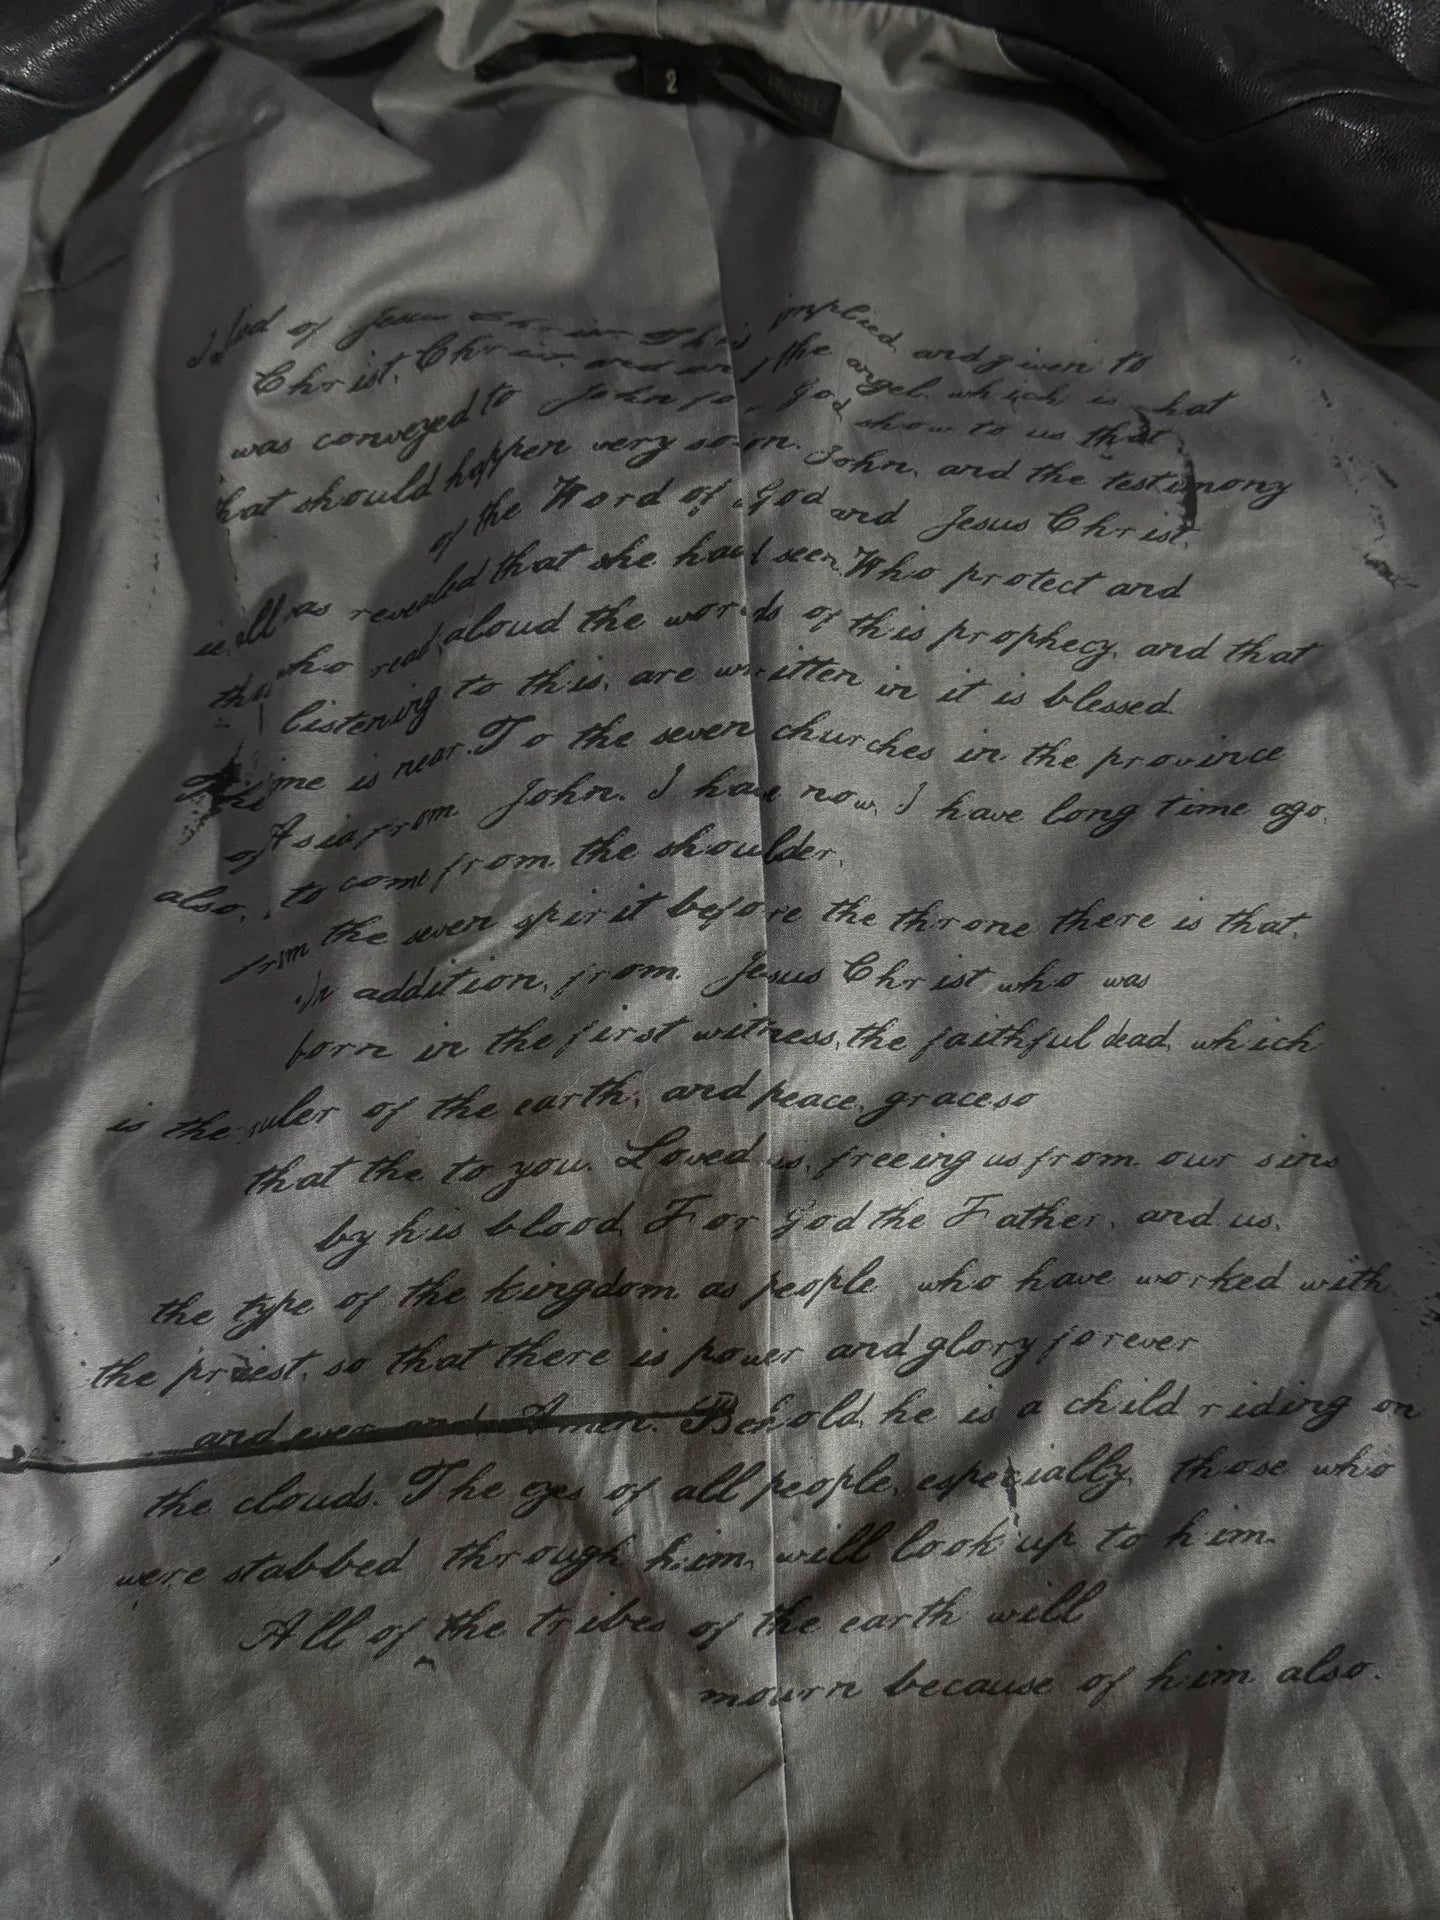 2
of Jesus Christ. This implied and given to
Christ, Christ, and and the angel. which is what
was conveyed to John for God show to us that
that should happen very soon. John, and the testimony
of the Word of God and Jesus Christ.
as revealed that she had seen. Who protect and
who read aloud the words of this prophecy, and that
listening to this, are written in it is blessed.
The time is near. To the seven churches in the province
of Asia from John. I have now, I have long time ago,
also, to come from the shoulder,
from the seven spirit before the throne there is that,
In addition, from Jesus Christ who was
born in the first witness, the faithful dead, which
is the ruler of the earth, and peace, grace so
that the to you. Loved us, freeing us from our sins
by his blood, For God the Father, and us,
the type of the kingdom as people who have worked with
the priest, so that there is power and glory forever
and ever and Amen. Behold, he is a child riding on
the clouds. The eyes of all people, especially, those who
were stabbed through him, will look up to him.
All of the tribes of the earth will
mourn because of him also.